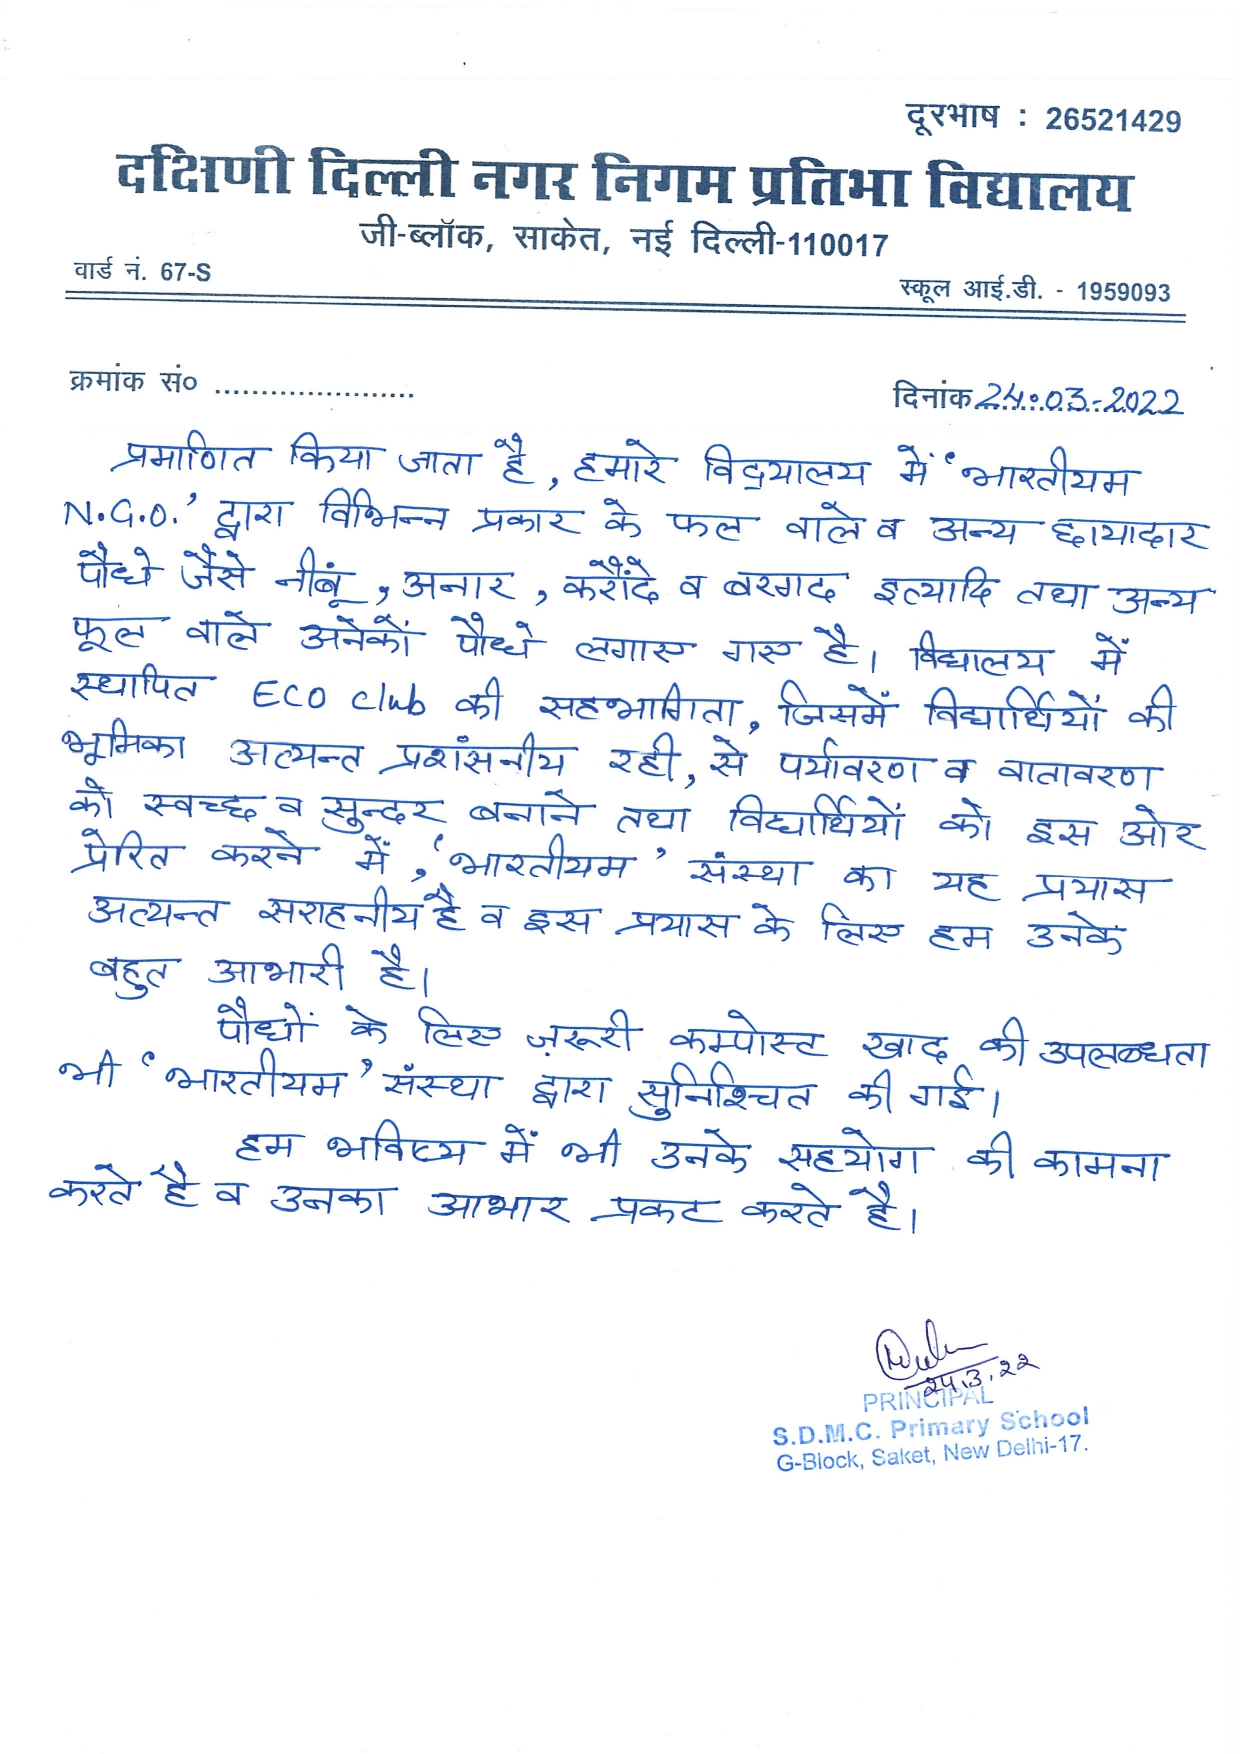 दूरभाष : 26521429
दक्षिणी दिल्ली नगर निगम प्रतिभा विद्यालय
जी-ब्लॉक, साकेत, नई दिल्ली-110017
वार्ड नं. 67-S
स्कूल आई.डी. - 1959093
क्रमांक सं० ......................
दिनांक 24.03.2022
प्रमाणित किया जाता है, हमारे विद्यालय में 'भारतीयम
N.G.O.' द्वारा विभिन्न प्रकार के फल वाले व अन्य छायादार
पौधे जैसे नीबूं, अनार, करौंदे व बरगद इत्यादि तथा अन्य
फूल वाले अनेकों पौधे लगाए गए है। विद्यालय में
स्थापित ECO Club की सहभागिता, जिसमें विद्यार्थियों की
भूमिका अत्यन्त प्रशंसनीय रही, से पर्यावरण व वातावरण
को स्वच्छ व सुन्दर बनाने तथा विद्यार्थियों को इस ओर
प्रेरित करने में, 'भारतीयम' संस्था का यह प्रयास
अत्यन्त सराहनीय है व इस प्रयास के लिए हम उनके
बहुत आभारी है।
पौधों के लिए ज़रूरी कम्पोस्ट खाद की उपलब्धता
भी 'भारतीयम' संस्था द्वारा सुनिश्चित की गई।
हम भविष्य में भी उनके सहयोग की कामना
करते है व उनका आभार प्रकट करते है।
24.3.22
PRINCIPAL
S.D.M.C. Primary School
G-Block, Saket, New Delhi-17.